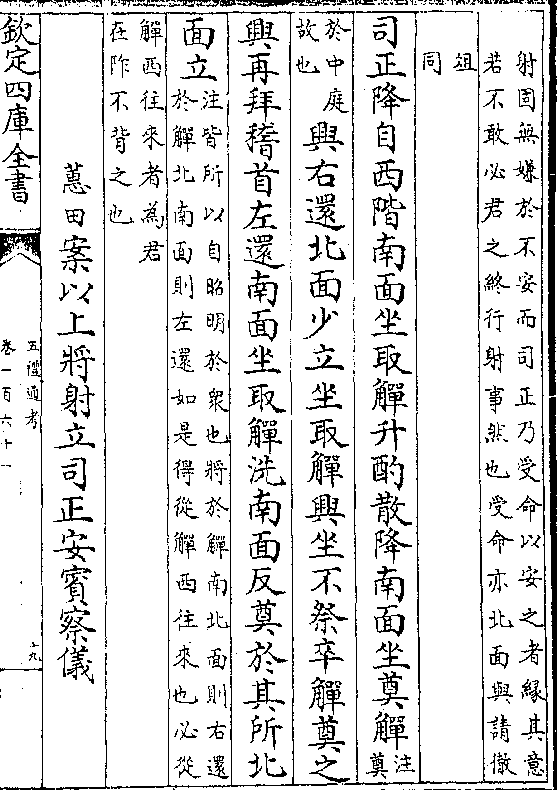 射固無嫌於不安而司正乃受命以安之者緣其意
若不敢必君之終行射事然也受命亦北面與請徹
俎
同
司正降自西階南面坐取觶升酌散降南面坐奠觶
注
奠
於中庭
故也
興右還北面少立坐取觶興坐不祭卒觶奠之
興再拜稽首左還南面坐取觶洗南面反奠於其所北
面立
注皆所以自昭明於衆也將於觶南北面則右還
於觶北南面則左還如是得從觶西往來也必從
觶西往來者為君
在阼不背之也
蕙田案以上將射立司正安賓察儀
欽定四庫全書
五禮通考
卷一百六十一
十九